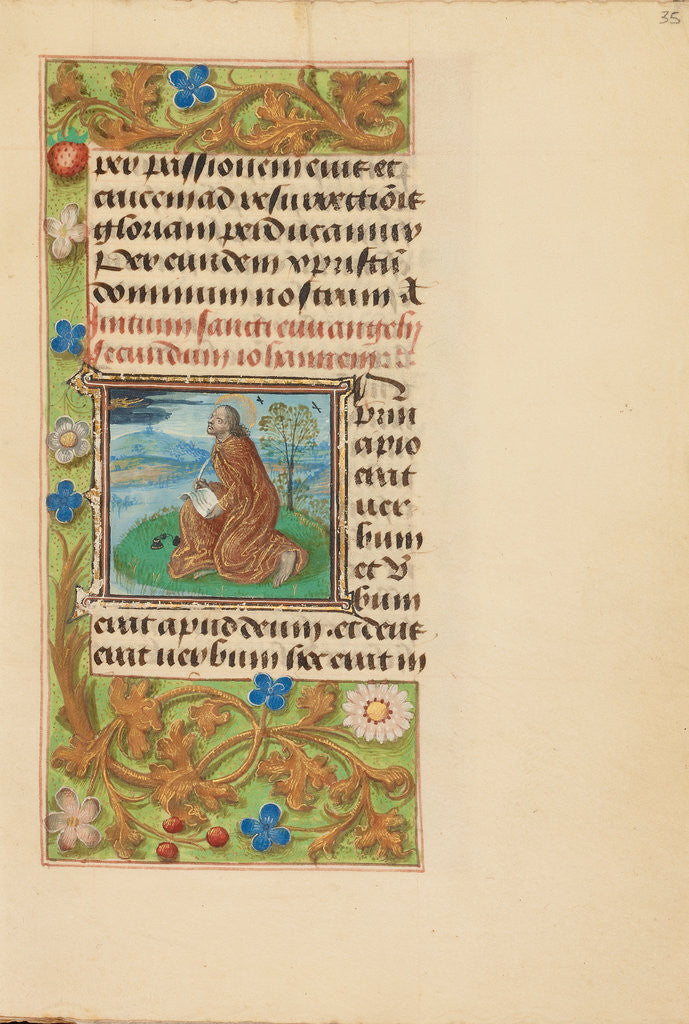 35
per passionem eius et
crucem ad resurrectiōis
gloriam perducamur
Per eundem xpristū
dominum nostrum A
Inicium sancti euuangelij
secundum iohannem
prin
cipio
erat
uer
bum
et v̄
bum
erat apud deum · et deus
erat uerbum hoc erat in